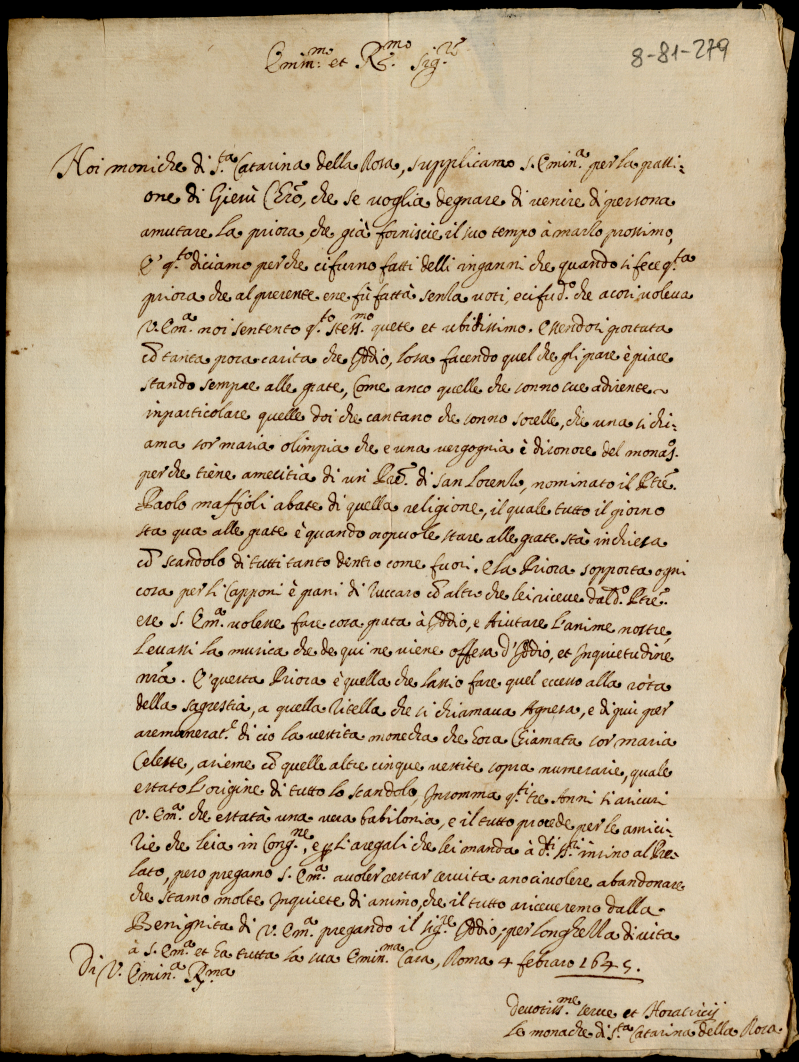 8-81-279
Emin.mo et R.mo Sig.re
Noi moniche di S.ta Catarina della Rosa, supplicamo S. Emin.a per la passi:
one di Giesù Chro, che se voglia degnare di venire di persona
a mutare la priora, che già forniscie il suo tempo à marzo prossimo,
E q.to diciamo perche ci furno fatti delli inganni che quando si fece q.ta
priora che al presente ene fù fatta senza voti, e ci fu d.o che acosi voleva
V. Em.a noi sentento q.to stess.mo quete et ubidissimo. Essendosi portata
cō tanta poca carita che Iddio, losa facendo quel che gli pare è piace
stando sempre alle grate, come anco quelle che sonno sue adriente
in particolare quelle doi che cantano che sonno sorelle, che una si chi:
ama sor maria olimpia che e una vergognia è disonore del monas.o
perche tiene ametitia di un Pre. di san Lorenzo, nominato il Ptre.
Paolo maffioli abate di quella religione, il quale tutto il giorno
sta qua alle grate è quando no puole stare alle grate stà in chiesa
cō scandolo di tutti tanto dentro come fuori. e la Priora sopporta ogni
cosa per li Capponi è pani di zuccaro cō altro che lei riceve dal d.o Ptre.
ese S. Em.a volesse fare cosa grata à Iddio, e Aiutare l'anime nostre,
Levassi la musica che de qui ne viene offesa d'Iddio, et Inquietudine
nra. E questa Priora è quella che lassio fare quel eccesso alla rota
della sagrestia, a quella zitella che si chiamava Agnesa, e di qui per
aremunerat.e di cio la vestita monecha che hora chiamata sor maria
Celeste, asieme cō quelle altre cinque vestite sopra numerarie, quale
estato l'origine di tutto lo scandolo, Insomma q.ti tre Anni si asicuri
V. Em.a che estata una vera babilonia, e il tutto procede per le amici:
zie che leia in Cong.ne, e gli aregali che lei manda à d.ti S.ri insino al Pre:
lato, pero pregamo S. Em.a a voler restar servita a no ci volere abandonare
che stamo molte Inquiete di animo, che il tutto ariceveremo dalla
Benignita di V. Em.a pregando il sig.re Iddio, per longhezza di vita
à S. Em.a et ha tutta la sua Emin.ma Casa, Roma 4 febraro 1645.
Di V. Emin.a R.ma
Devotiss.me serve et Horatricij
Le monache di S.ta Catarina della Rosa